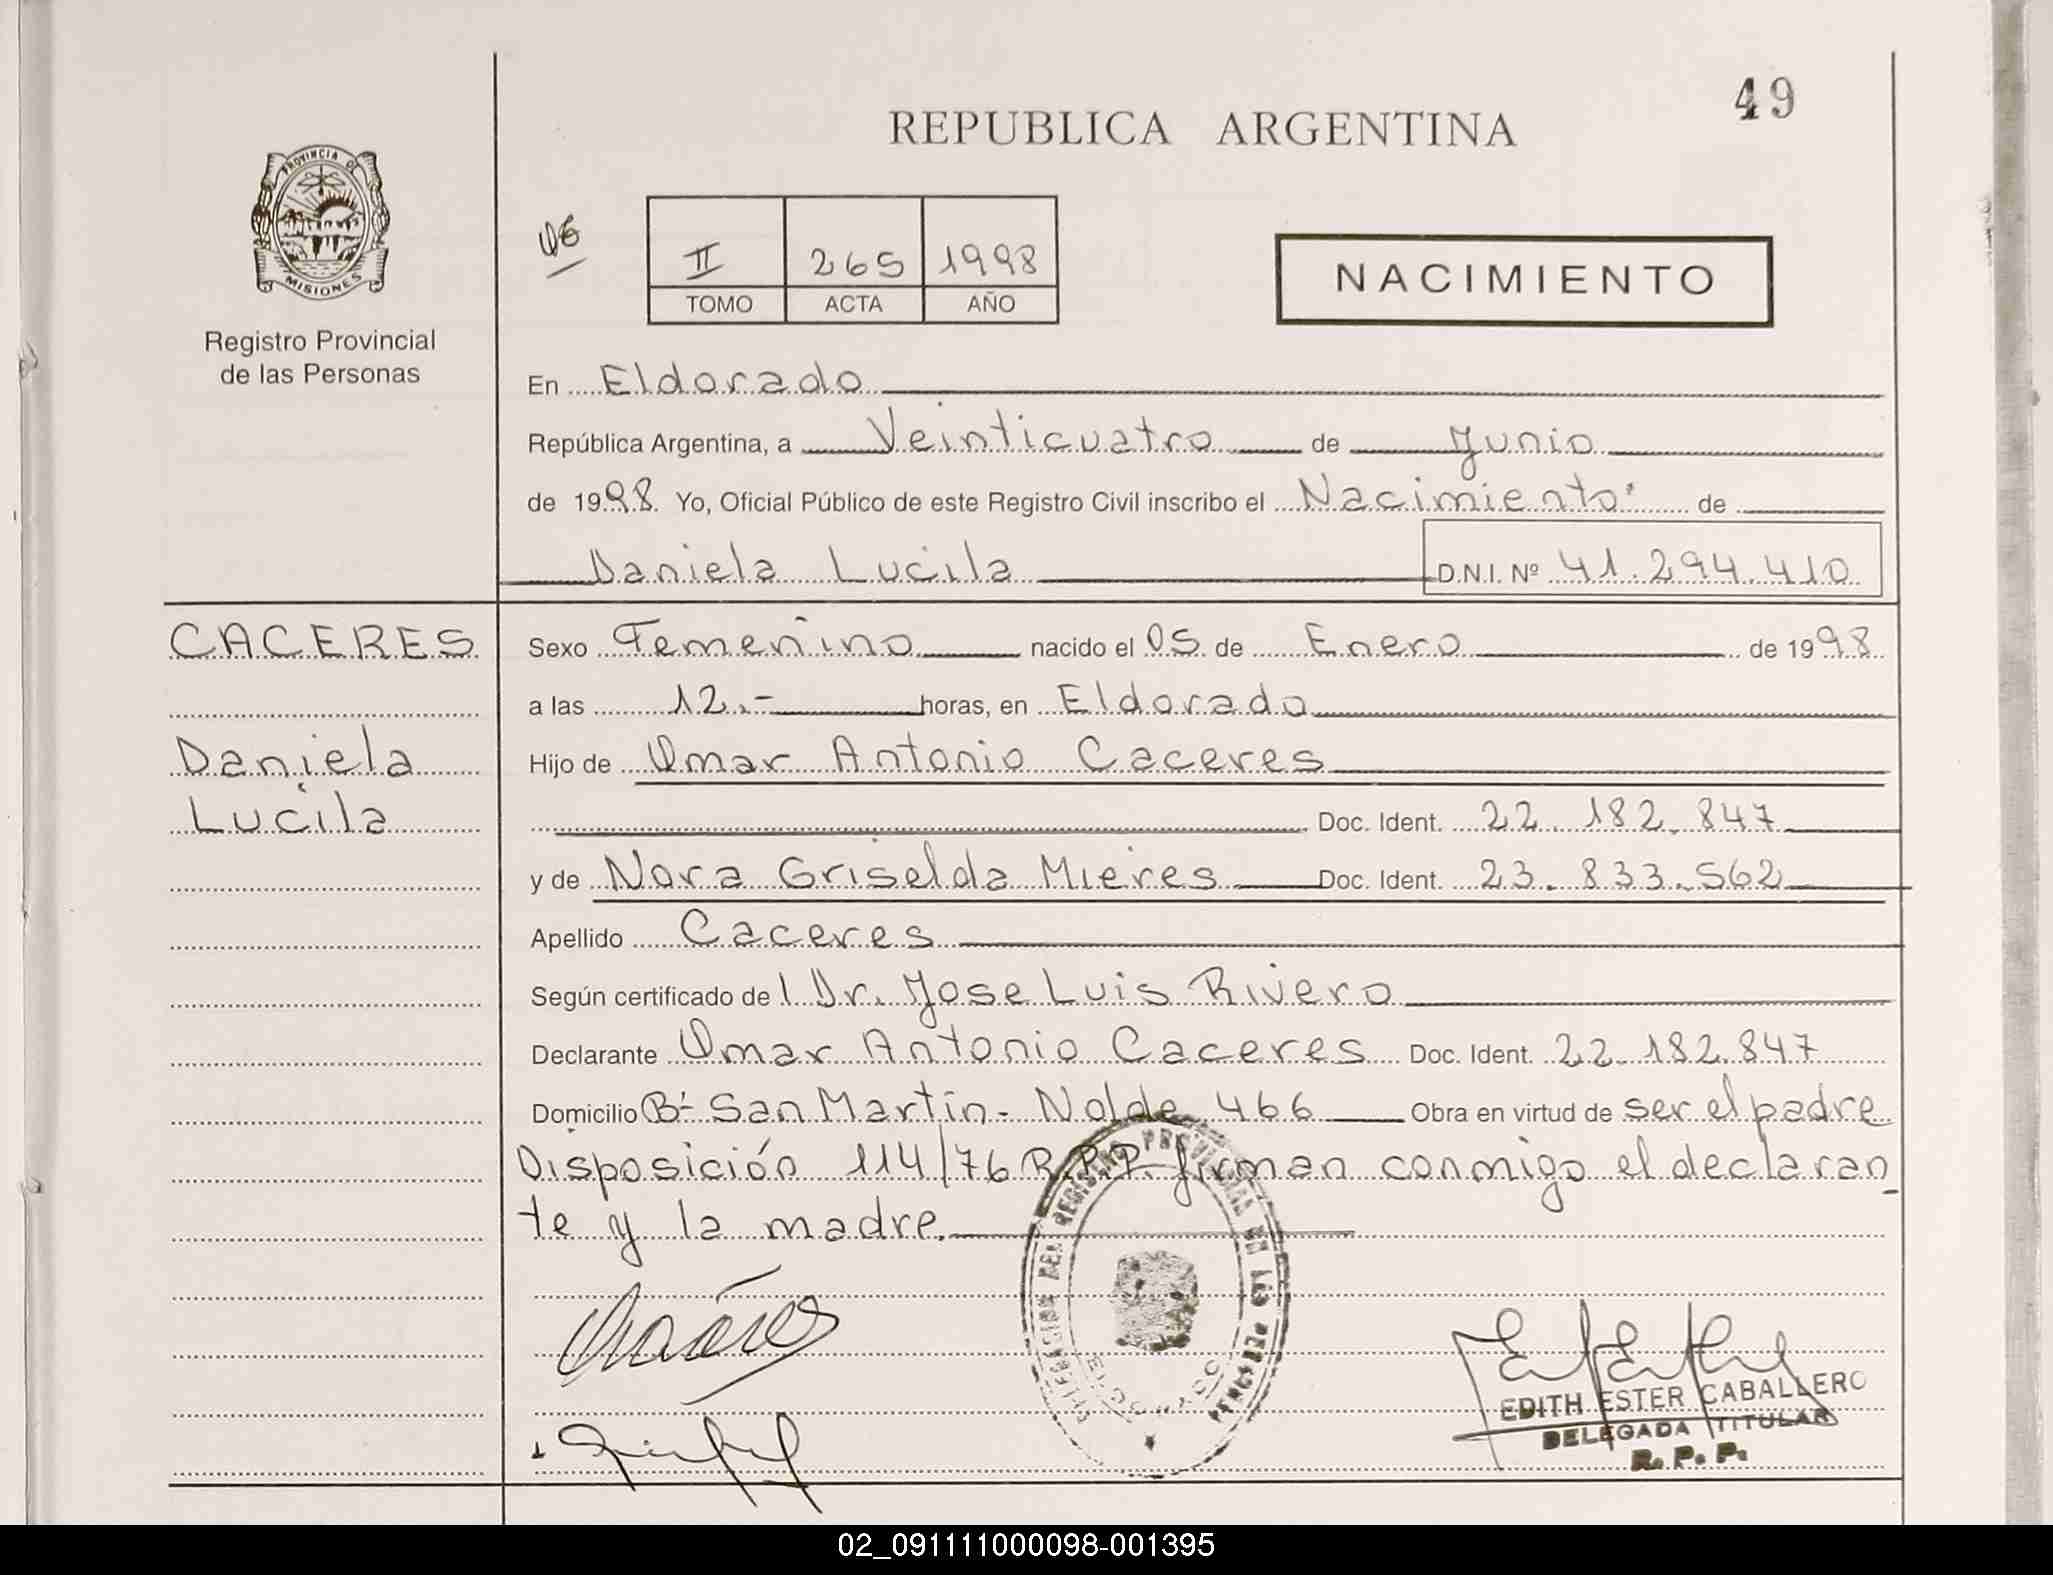 49
REPUBLICA ARGENTINA
PROVINCIA DE
MISIONES
Registro Provincial
de las Personas
II 265 1998
TOMO ACTA AÑO
NACIMIENTO
En Eldorado
República Argentina, a Veinticuatro de Junio
de 1998. Yo, Oficial Público de este Registro Civil inscribo el Nacimiento de
Daniela Lucila D.N.I. Nº 41.294.410
CACERES
Daniela
Lucila
Sexo Femenino nacido el 05 de Enero de 1998
a las 12.- horas, en Eldorado
Hijo de Omar Antonio Caceres
Doc. Ident. 22.182.847
y de Nora Griselda Mieres Doc. Ident. 23.833.562
Apellido Caceres
Según certificado de l Dr. Jose Luis Rivero
Declarante Omar Antonio Caceres Doc. Ident. 22.182.847
Domicilio Bº San Martin - Nolde 466 Obra en virtud de ser el padre
Disposición 114/76 R.P.P. firman conmigo el declaran_
te y la madre.
DELEGACION DEL REGISTRO PROVINCIAL DE LAS PERSONAS
ELDORADO
EDITH ESTER CABALLERO
DELEGADA TITULAR
R. P. P.
02_091111000098-001395